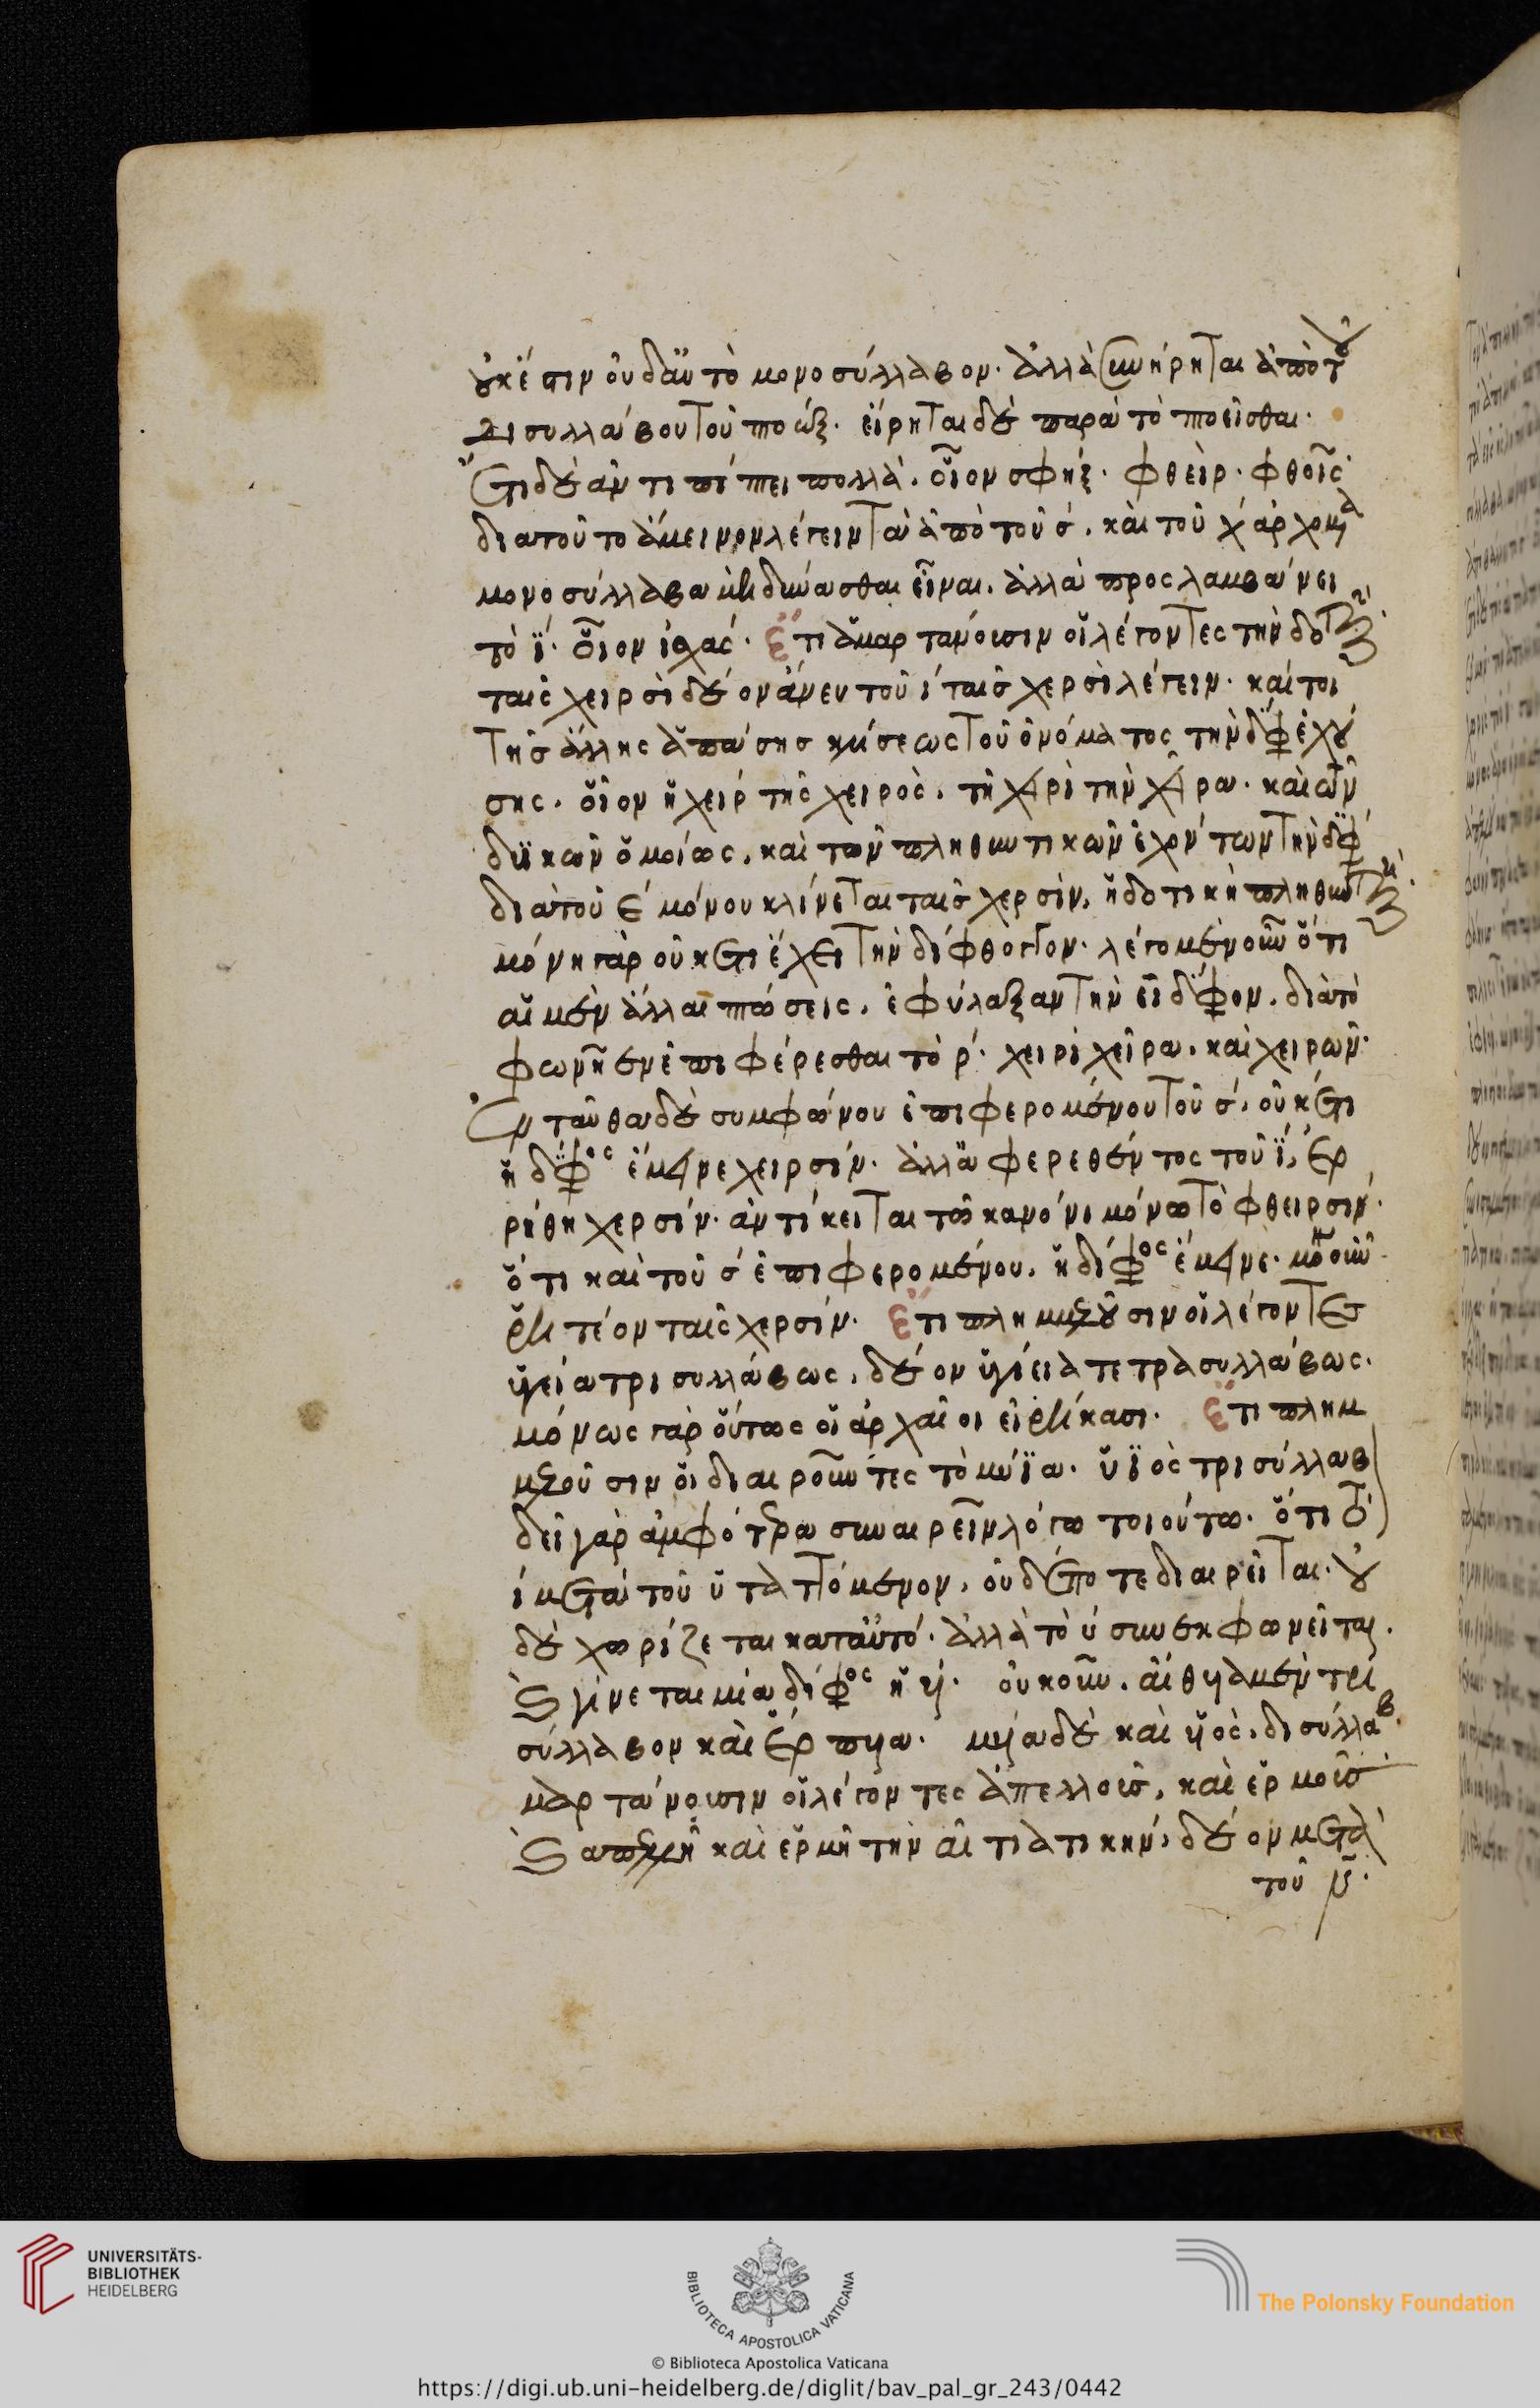 οὐκ ἔστιν οὐδ' αὐτὸ μονοσύλλαβον. ἀλλὰ συνήρηται ἀπὸ τοῦ
δισυλλάβου τοῦ πτωξ. εἴρηται δὲ παρὰ τὸ
ἔτι δὲ ἀντιπίπτει πολλά. οἷον σφήξ. φθείρ. φθοῖς.
διὰ τοῦτο ἄμεινον λέγειν τὰ ἀπὸ τοῦ σ. καὶ τοῦ χ ἀρχόμενα
μονοσύλλαβα μὴ δύνασθαι εἶναι. ἀλλὰ προσλαμβάνει
τὸ ϊ. οἷον ἰσχάς. ἔτι ἁμαρτάνουσιν οἱ λέγοντες τὴν δοτικὴν
ταῖς χειρσὶ δέον ἄνευ τοῦ ι ταῖς χερσὶ λέγειν. καίτοι
τῆς ἄλλης ἁπάσης κλίσεως τοῦ ὀνόματος τὴν δίφθογγον ἐχού
σης. οἷον ἡ χείρ τῆς χειρός. τῇ χειρὶ τὴν χεῖρα. καὶ τῶν
δυϊκῶν ὁμοίως. καὶ τῶν πληθυντικῶν ἐχόντων τὴν δίφθογγον
διὰ τοῦ ε μόνου κλίνεται ταῖς χερσίν. ἡ δοτικὴ πληθυντικῶν
μόνη γὰρ οὐκέτι ἔχει τὴν δίφθογγον. λέγομεν οὖν ὅτι
αἱ μὲν ἄλλαι πτώσεις. ἐφύλαξαν τὴν ει δίφθογγον. διὰ τὸ
φωνῆεν ἐπιφέρεσθαι τὸ ρ. χειρὶ χεῖρα. καὶ χειρῶν.
Ἐνταῦθα δὲ συμφώνου ἐπιφερομένου τοῦ σ. οὐκέτι
ἡ δίφθογγος ἔμεινε χειρσίν. ἀλλ' ἀφαιρεθέντος τοῦ ϊ, ἐρ
ρήθη χερσίν. ἀντίκειται τῷ κανόνι μόνῳ τὸ φθειρσίν.
ὅτι καὶ τοῦ σ ἐπιφερομένου. ἡ δίφθογγος ἔμεινε. μόνον οὖν
ῥητέον ταῖς χερσίν. ἔτι πλημμελοῦσιν οἱ λέγοντες
ὑγεία τρισυλλάβως. δέον ὑγίεια τετρασυλλάβως.
μόνως γὰρ οὕτως οἱ ἀρχαῖοι εἰρήκασι. ἔτι πλημ
μελοῦσιν οἱ διαιροῦντες τὸ μύϊα. ὑϊὸς τρισύλλαβ
δεῖ γὰρ ἀμφότερα συναιρεῖν λόγῳ τοιούτῳ. ὅτι τὸ
ι μετὰ τοῦ υ ταττόμενον. οὐδέποτε διαιρεῖται. οὐ
δὲ χωρίζεται κατ' αὐτό. ἀλλὰ τὸ υ συνεκφωνεῖται.
καὶ γίνεται μία δίφθογγος ἡ υι. οὐκοῦν. αἴθυια μὲν τρι
σύλλαβον καὶ ἅρπυια. μυῖα δὲ καὶ υἱός. δισύλλαβ.
μαρτάνουσιν οἱ λέγοντες ἀπελλοῖς, καὶ ἑρμοῖς
καὶ ἀπελλῆ καὶ ἑρμῆ τὴν αἰτιατικήν. δέον μετὰ
τοῦ ν.
UNIVERSITÄTS-
BIBLIOTHEK
HEIDELBERG
BIBLIOTECA APOSTOLICA VATICANA
The Polonsky Foundation
© Biblioteca Apostolica Vaticana
https://digi.ub.uni-heidelberg.de/diglit/bav_pal_gr_243/0442